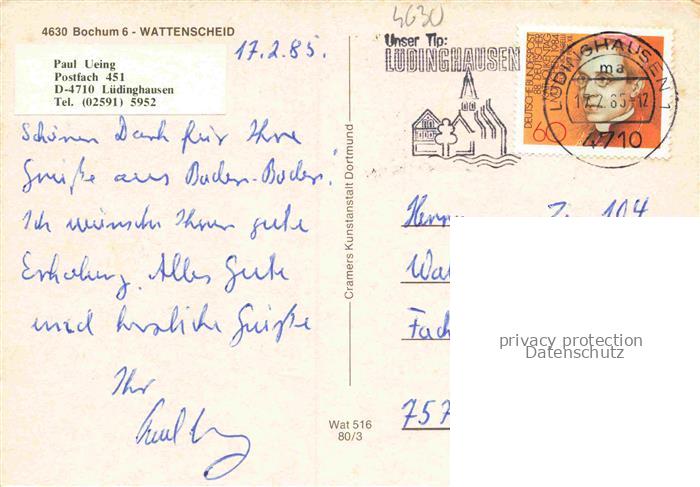 4630
4630 Bochum 6 - WATTENSCHEID
17.2.85.
Paul Ueing
Postfach 451
D-4710 Lüdinghausen
Tel. (02591) 5952
Schönen Dank für Ihre
Grüße aus Baden-Baden.
Ich wünsche Ihnen gute
Erholung. Alles Gute
und herzliche Grüße
Ihr
Paul Ueing
Cramers Kunstanstalt Dortmund
Wat 516
80/3
Unser Tip:
LÜDINGHAUSEN
DEUTSCHE BUNDESPOST
88. DEUTSCHER
60
LÜDINGHAUSEN 1
ma
17.2.85-12
4710
Herrn Zi. 104
Wal
Fach
757
privacy protection
Datenschutz